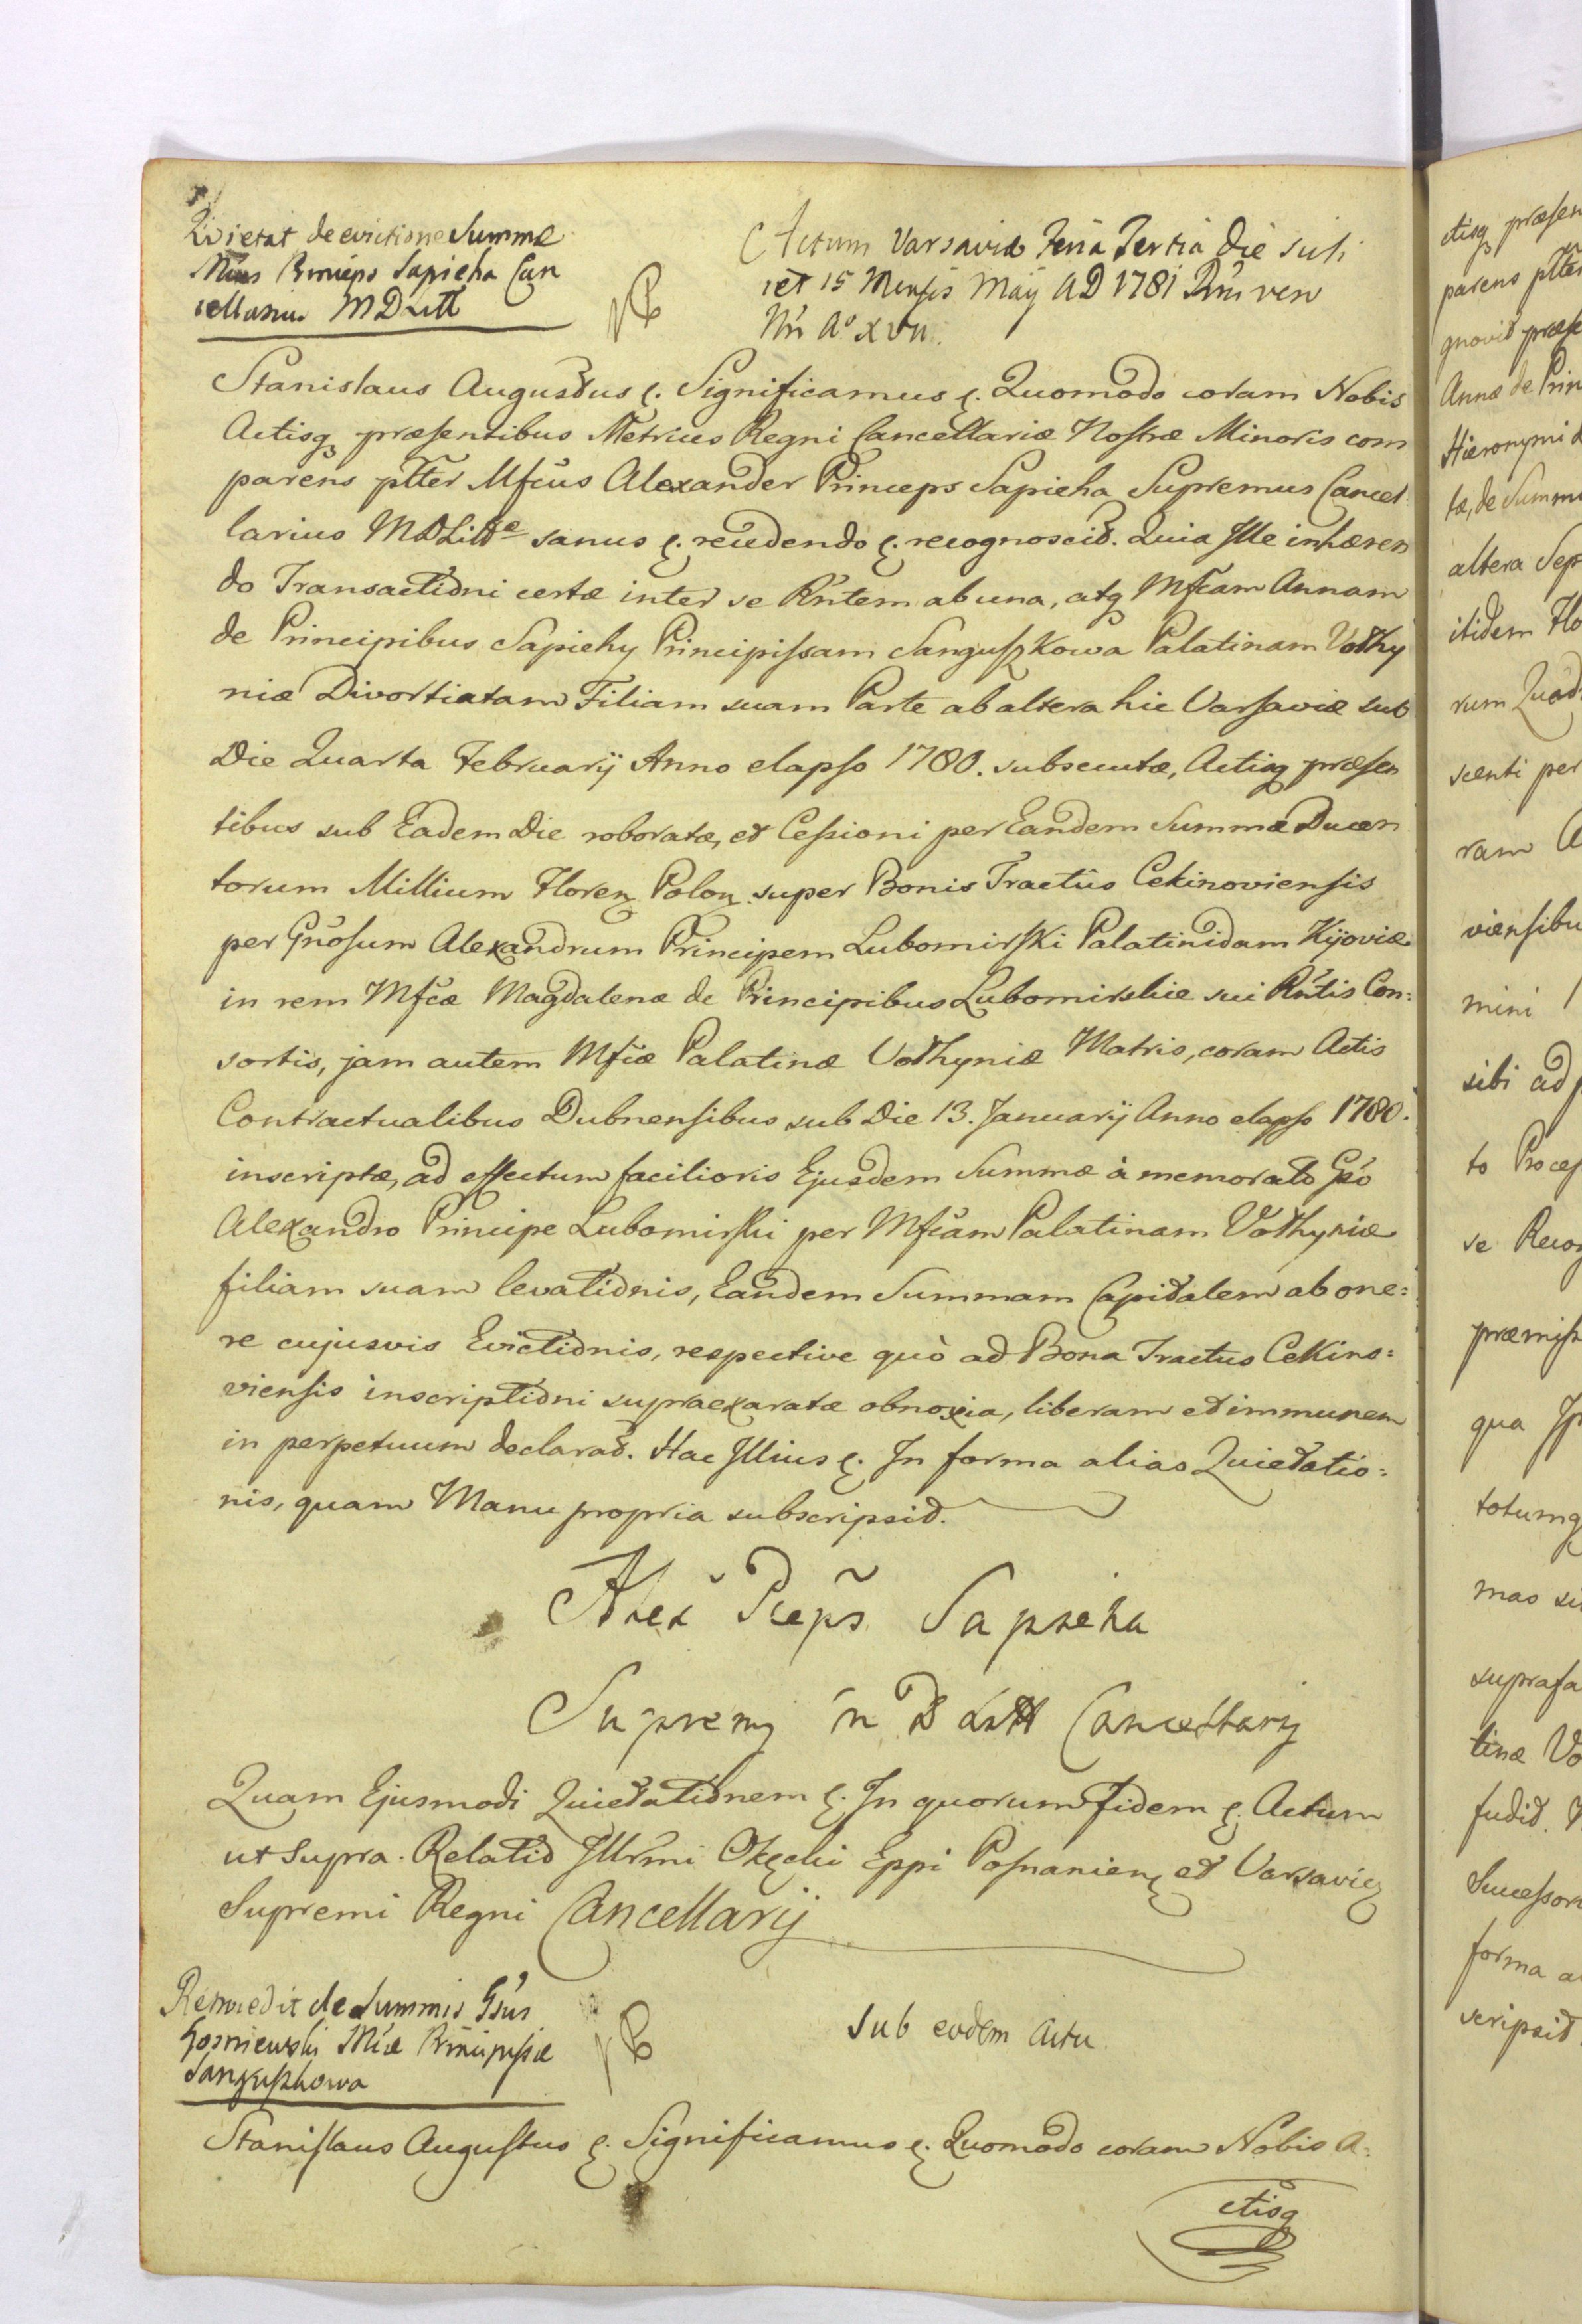 Quietat de evictione Summæ
Mcus Princeps Sapieha Can
cellarius MDLitt
Actum Varsaviæ Feria Tertia Die sci
licet 15 Mensis Maÿ AD 1781 Rni vero
Nri Ao XVII.
Stanislaus Augustus ę. Significamus ę. Quomodo coram Nobis
Actisq præsentibus Metrices Regni Cancellariæ Nostræ Minoris com
parens pltter Mfcus Alexander Princeps Sapieha Supremus Cancel
larius MDLittæ sanus ę. recedendo ę. recognoscit. Quia Ille inhæren
do Transactioni certæ inter se Rntem ab una, atq Mfcam Annam
de Principibus Sapiehy Principissam Sanguszkowa Palatinam Volhy
niæ Divortiatam Filiam suam Parte ab altera hic Varsaviæ sub
Die Quarta Februarÿ Anno elapso 1780. subsecutæ, Actisq præsen
tibus sub Eadem Die roboratæ, et Cessioni per Eandem Summæ Ducen
torum Millium Floren Polon. super Bonis Tractûs Cekinoviensis
per Gnosum Alexandrum Principem Lubomirski Palatinidam Kijoviæ
in rem Mfcæ Magdalenæ de Principibus Lubomirskie sui Rntis Con:
sortis, jam autem Mfcæ Palatinæ Volhyniæ Matris, coram Actis
Contractualibus Dubnensibus sub Die 13. Januarÿ Anno elapso 1780.
inscriptæ, ad effectum facilioris Ejusdem Summæ à memorato Gso
Alexandro Principe Lubomirski per Mfcam Palatinam Volhyniæ
filiam suam levationis, Eandem Summam Capitalem ab one:
re cujusvis Evictionis, respective quò ad Bona Tractus Cekino:
viensis inscriptioni supraexaratæ obnoxia, liberam et immunem
in perpetuum declarat. Hac Illius ę. In forma alias Quietatio:
nis, quam Manu propria subscripsit.
Alex Pceps Sapieha
Supremy M D Litt Cancellary
Quam Ejusmodi Quietationem ę. In quorum fidem ę. Actum
ut Supra. Relatio Illrmi Okęcki Eppi Posnanien et Varsavien
Supremi Regni Cancellarij
Roboredit de Summis Gsus
Gosniewski Mcæ Principissæ
Sanguszkowa
Sub eodem Actu
Stanislaus Augustus ę. Significamus ę. Quomodo coram Nobis A:
ctisq
ctisq præsen
parens pltter
gnovit præse
Annæ de Prin
Hieronymi d
tæ, de Summ
altera Sep
itidem Flo
rum Quad
scenti per
ram A
viensibu
mini
sibi ad
to Proces
se Recog
præmiss
qua Ip
totumq
mas su
suprasa
tinæ Vo
fudit.
Successor
forma a
scripsit